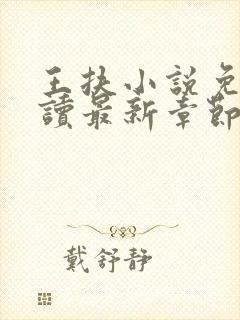 王扶小說免
讀最新章節
戴舒靜